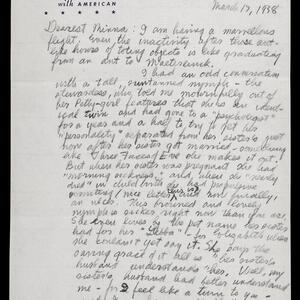 with AMERICAN
March 17, 1958
Dearest Minna: I am having a marvellous
flight. Even the inactivity after those
hours of toting objects is like graduating
from an ant to Maeterlinck.
I had an odd conversation
with a tall, suntanned nymph - the
stewardess, who told me mournfully out of
her Petty-girl features that she an
tical twin and had gone to a "psychologist"
for a year and a half to try to get her
"personality" separated from her sister's just
now after her sister got married - something
like Three Faces of Eve she makes it out.
But when her sister was pregnant she had
"morning sickness," and, where she "nearly
died" in childbirth she had
vomiting (nice elderly)
an
nymph is sicker right now than you are.
She knew lines by the pet name her sister
had for her "Lebba" - for Elizabeth when
she couldn't yet say it. She says the
saving grace of it all is "her sister's
husband understands her. Well, my
sister's husband had better understand
me - for I feel like a turn to you -